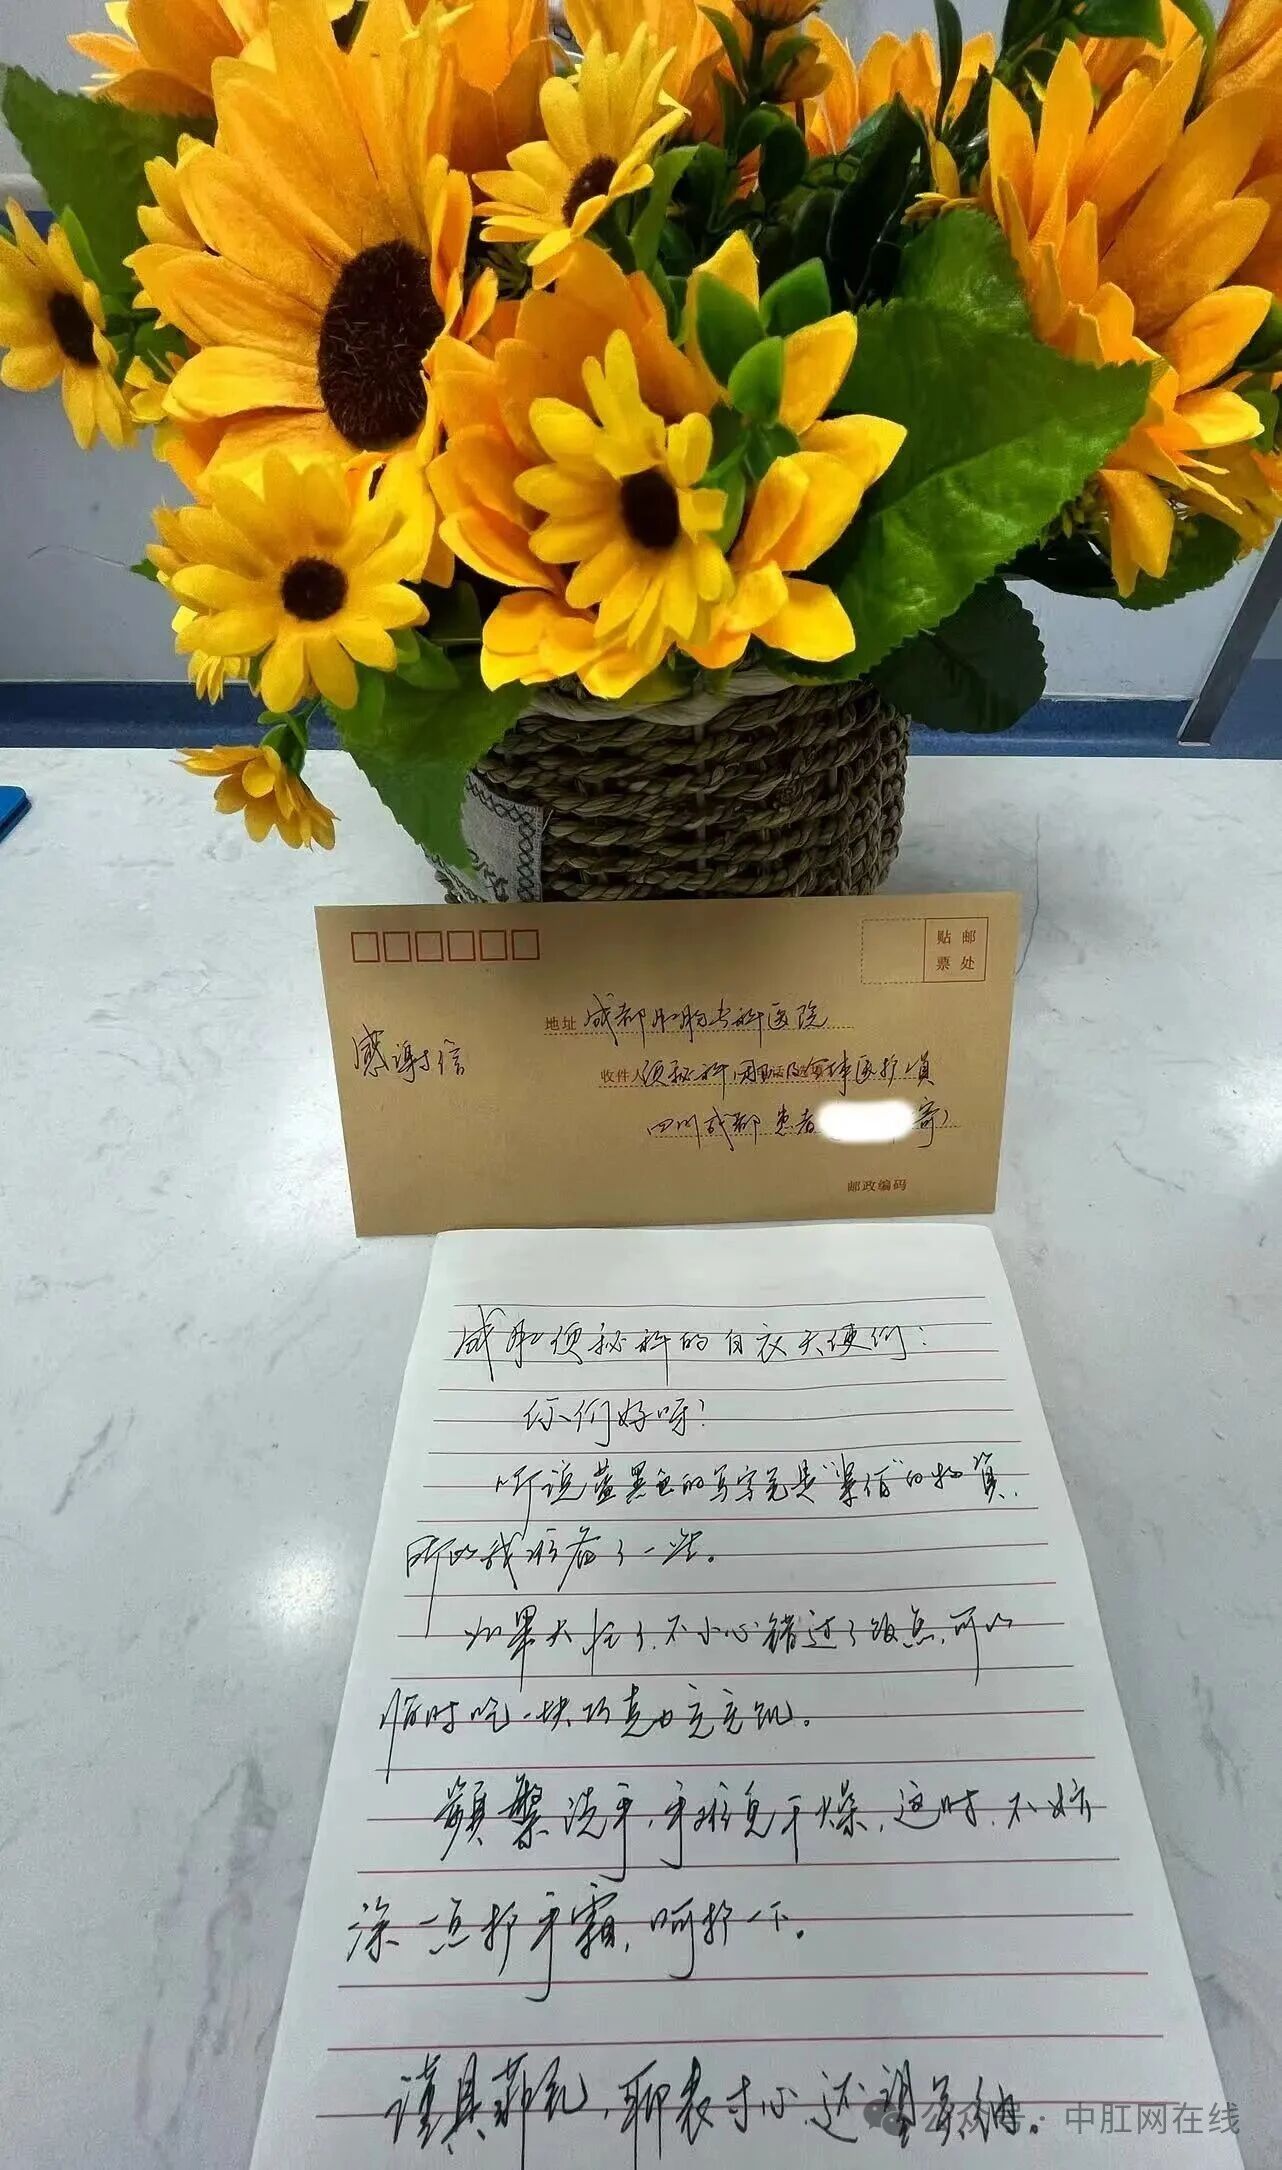 贴 邮
票 处
感谢信
地址 成都肛肠专科医院
收件人 便秘科周主任及全体医护 员
四川成都 患者 寄)
邮政编码
成肛便秘科的白衣天使们:
你们好呀!
听说蓝黑色的写字笔是“紧俏”的物资,
所以我准备了一些。
如果太忙了,不小心错过了饭点,可以
临时吃一块巧克力充充饥。
频繁洗手,手难免干燥,这时,不妨
涂一点护手霜,呵护一下。
谨具菲礼,聊表寸心,还望笑纳。
公众号 · 中肛网在线